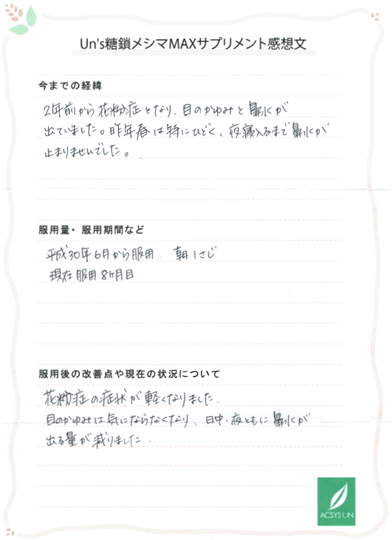 Un's糖鎖メシマMAXサプリメント感想文
今までの経緯
2年前から花粉症となり、目のかゆみと鼻水が
出ていました。昨年春は特にひどく、夜寝入るまで鼻水が
止まりませんでした。
服用量・服用期間など
平成30年6月から服用 朝1さじ
現在服用8ヶ月目
服用後の改善点や現在の状況について
花粉症の症状が軽くなりました。
目のかゆみは気にならなくなり、日中・夜ともに鼻水が
出る量が減りました。
ACSYS UN